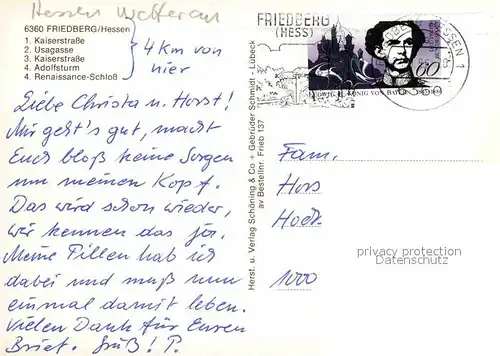 Hessen Wetterau
6360 FRIEDBERG/Hessen
1. Kaiserstraße
2. Usagasse
3. Kaiserstraße
4. Adolfsturm
4. Renaissance-Schloß
4 km von
hier
Liebe Christa u. Horst!
Mir geht's gut, macht
Euch bloß keine Sorgen
um meinen Kopf.
Das wird schon wieder,
wir kennen das ja.
Meine Pillen hab ich
dabei und muß nun
einmal damit leben.
Vielen Dank für Euren
Brief. Gruß! P.
Herst. u. Verlag Schöning & Co + Gebrüder Schmidt - Lübeck
av Bestellnr. Frieb 137
FRIEDBERG
(HESS)
60
LUDWIG II. KÖNIG VON BAYERN
HESSEN 1
Fam.
Hors
1000
privacy protection
Datenschutz